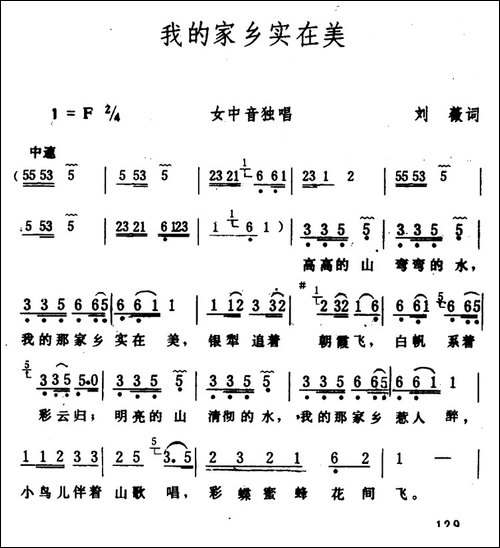 我的家乡实在美
1 = F 2/4 女中音独唱 刘 薇词
中速
(55 53 5 | 5 53 5 | 23 21 1 6 61 | 23 1 2 | 55 53 5 |
5 53 5 | 23 21 6 123 | 1 1 6 1) | 3 3 5 5 | 3 3 5 5 |
高高的 山 弯弯的 水,
3 3 5 6 65 | 6 6 1 1 | 1 12 3 32 | # 1 2 32 1 6 | 1 65 5 6 56 |
我的那家乡 实在 美, 银犁 追着 朝霞飞, 白帆 系着
5 3 35 5·0 | 3 3 5 5 | 3 3 5 5 | 3 3 5 6 65 | 6 61 1 |
彩云归; 明亮的 山 清彻的 水, 我的那家乡 惹人 醉,
1 1 2 3 3 | 2 5 5 3. 5 | 2 3 2 1 | 6 2 | 1 — ‖
小鸟儿伴着 山歌 唱, 彩 蝶 蜜 蜂 花 间 飞。
129